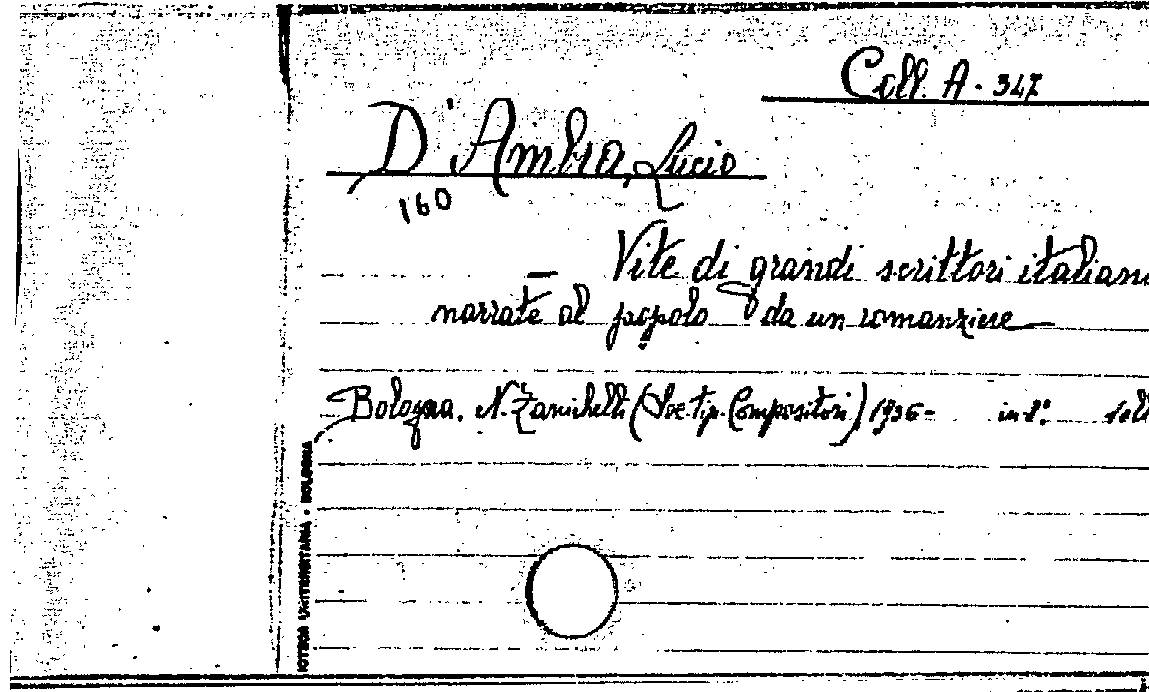 Coll. A - 347
D'Ambra, Lucio
160
— Vite di grandi scrittori italiani
narrate al popolo da un romanziere —
Bologna. N. Zanichelli (Soc. tip. Compositori) 1936 - in-8°.
IOTECA UNIVERSITARIA • BOLOGNA